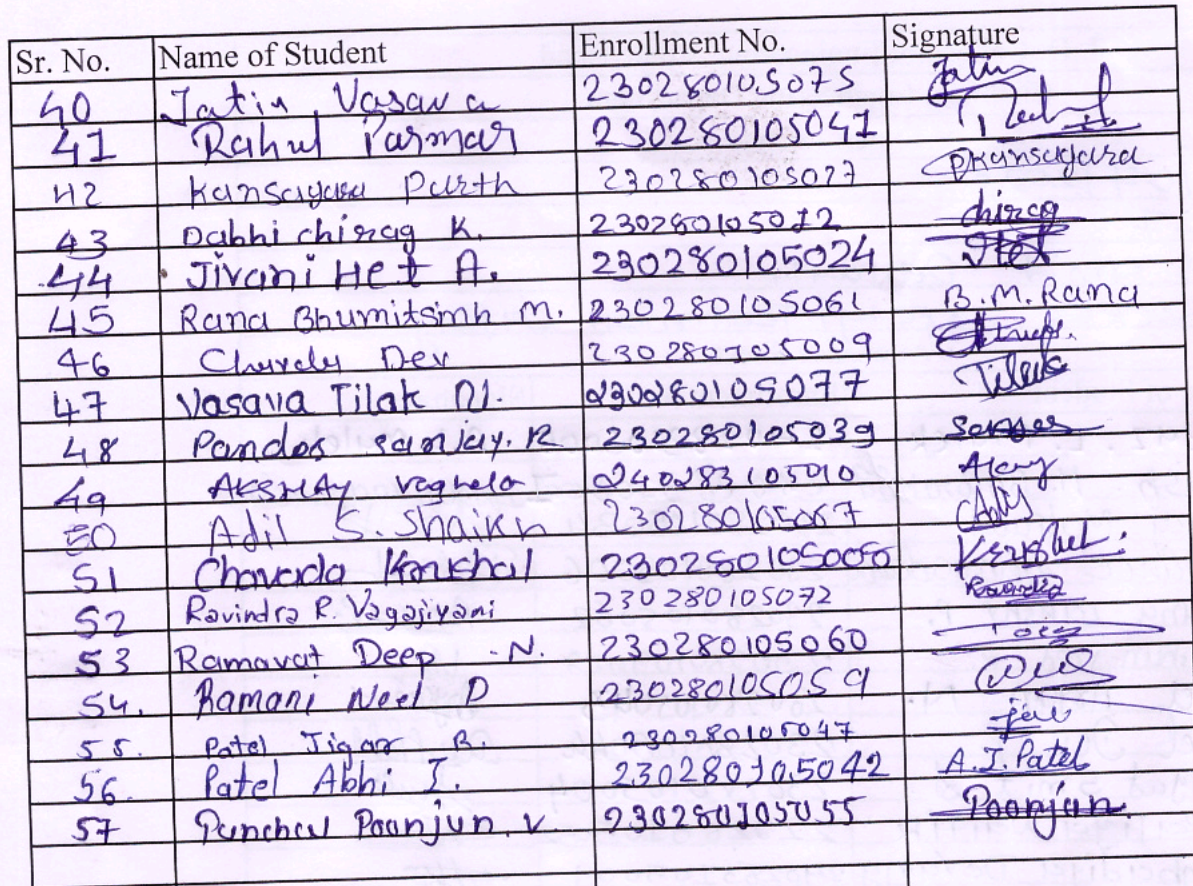 Sr. No. Name of Student Enrollment No. Signature
40 Jatin Vasava 230280105075 Jatin
41 Rahul Parmar 230280105041
42 Kansagara Parth 230280105027 PKansagara
43 Dabhi chirag K. 230280105012 chirag
44 Jivani Het A. 230280105024 Het
45 Rana Bhumitsinh M. 230280105061 B.M.Rana
46 Dev 230280105009
47 Vasava Tilak N. 230280105077 Tilak
48 Pandor sanjay. R 230280105039
49 AKSHAY vaghela 240283105010
50 Adil S. Shaikh 230280105067
51 Chavada Krushal 230280105008 Krushal.
52 Ravindra R. Vagajiyani 230280105072 Ravindra
53 Ramavat Deep .N. 230280105060
54. Ramani Neel D 230280105059
55. Patel Jigar B. 230280105047
56. Patel Abhi I. 230280105042 A.I.Patel
57 Panchal Poonjun. V 230280105055 Poonjun.